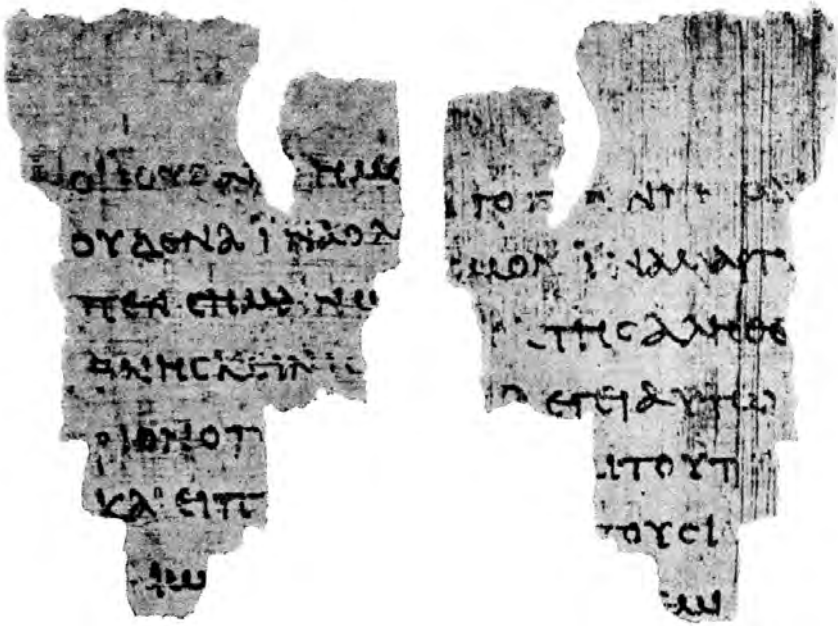 ΟΙ ΙΟΥΔΑΙ ΗΜΕ
ΟΥΔΕΝΑ ΪΝΑ Ο Λ
ΠΕΝ CΗΜΑΙΝΩ
ΘΝΗCΚΕΙΝ
ΡΙΟΝ Ο Π
ΚΑΙ ΕΙΠ
ΤΟ
CΜΟΝ ΪΝΑ ΜΑΡΤΥ
ΤΗC ΑΛΗΘΕ
ΛΕΓΕΙ ΑΥΤΩ
ΑΙ ΤΟΥΤ
ΤΟΥC Ι